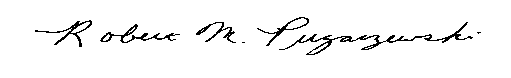 Robert M. Pugarzewski